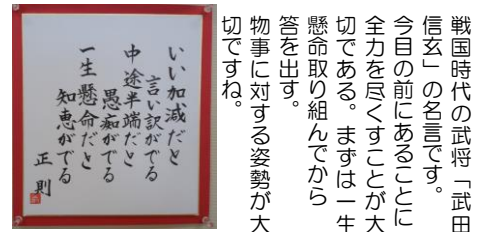 戦国時代の武将「武田
信玄」の名言です。
今目の前にあることに
全力を尽くすことが大
切である。まずは一生
懸命取り組んでから
答を出す。
物事に対する姿勢が大
切ですね。
いい加減だと
言い訳がでる
中途半端だと
愚痴がでる
一生懸命だと
知恵がでる
正則